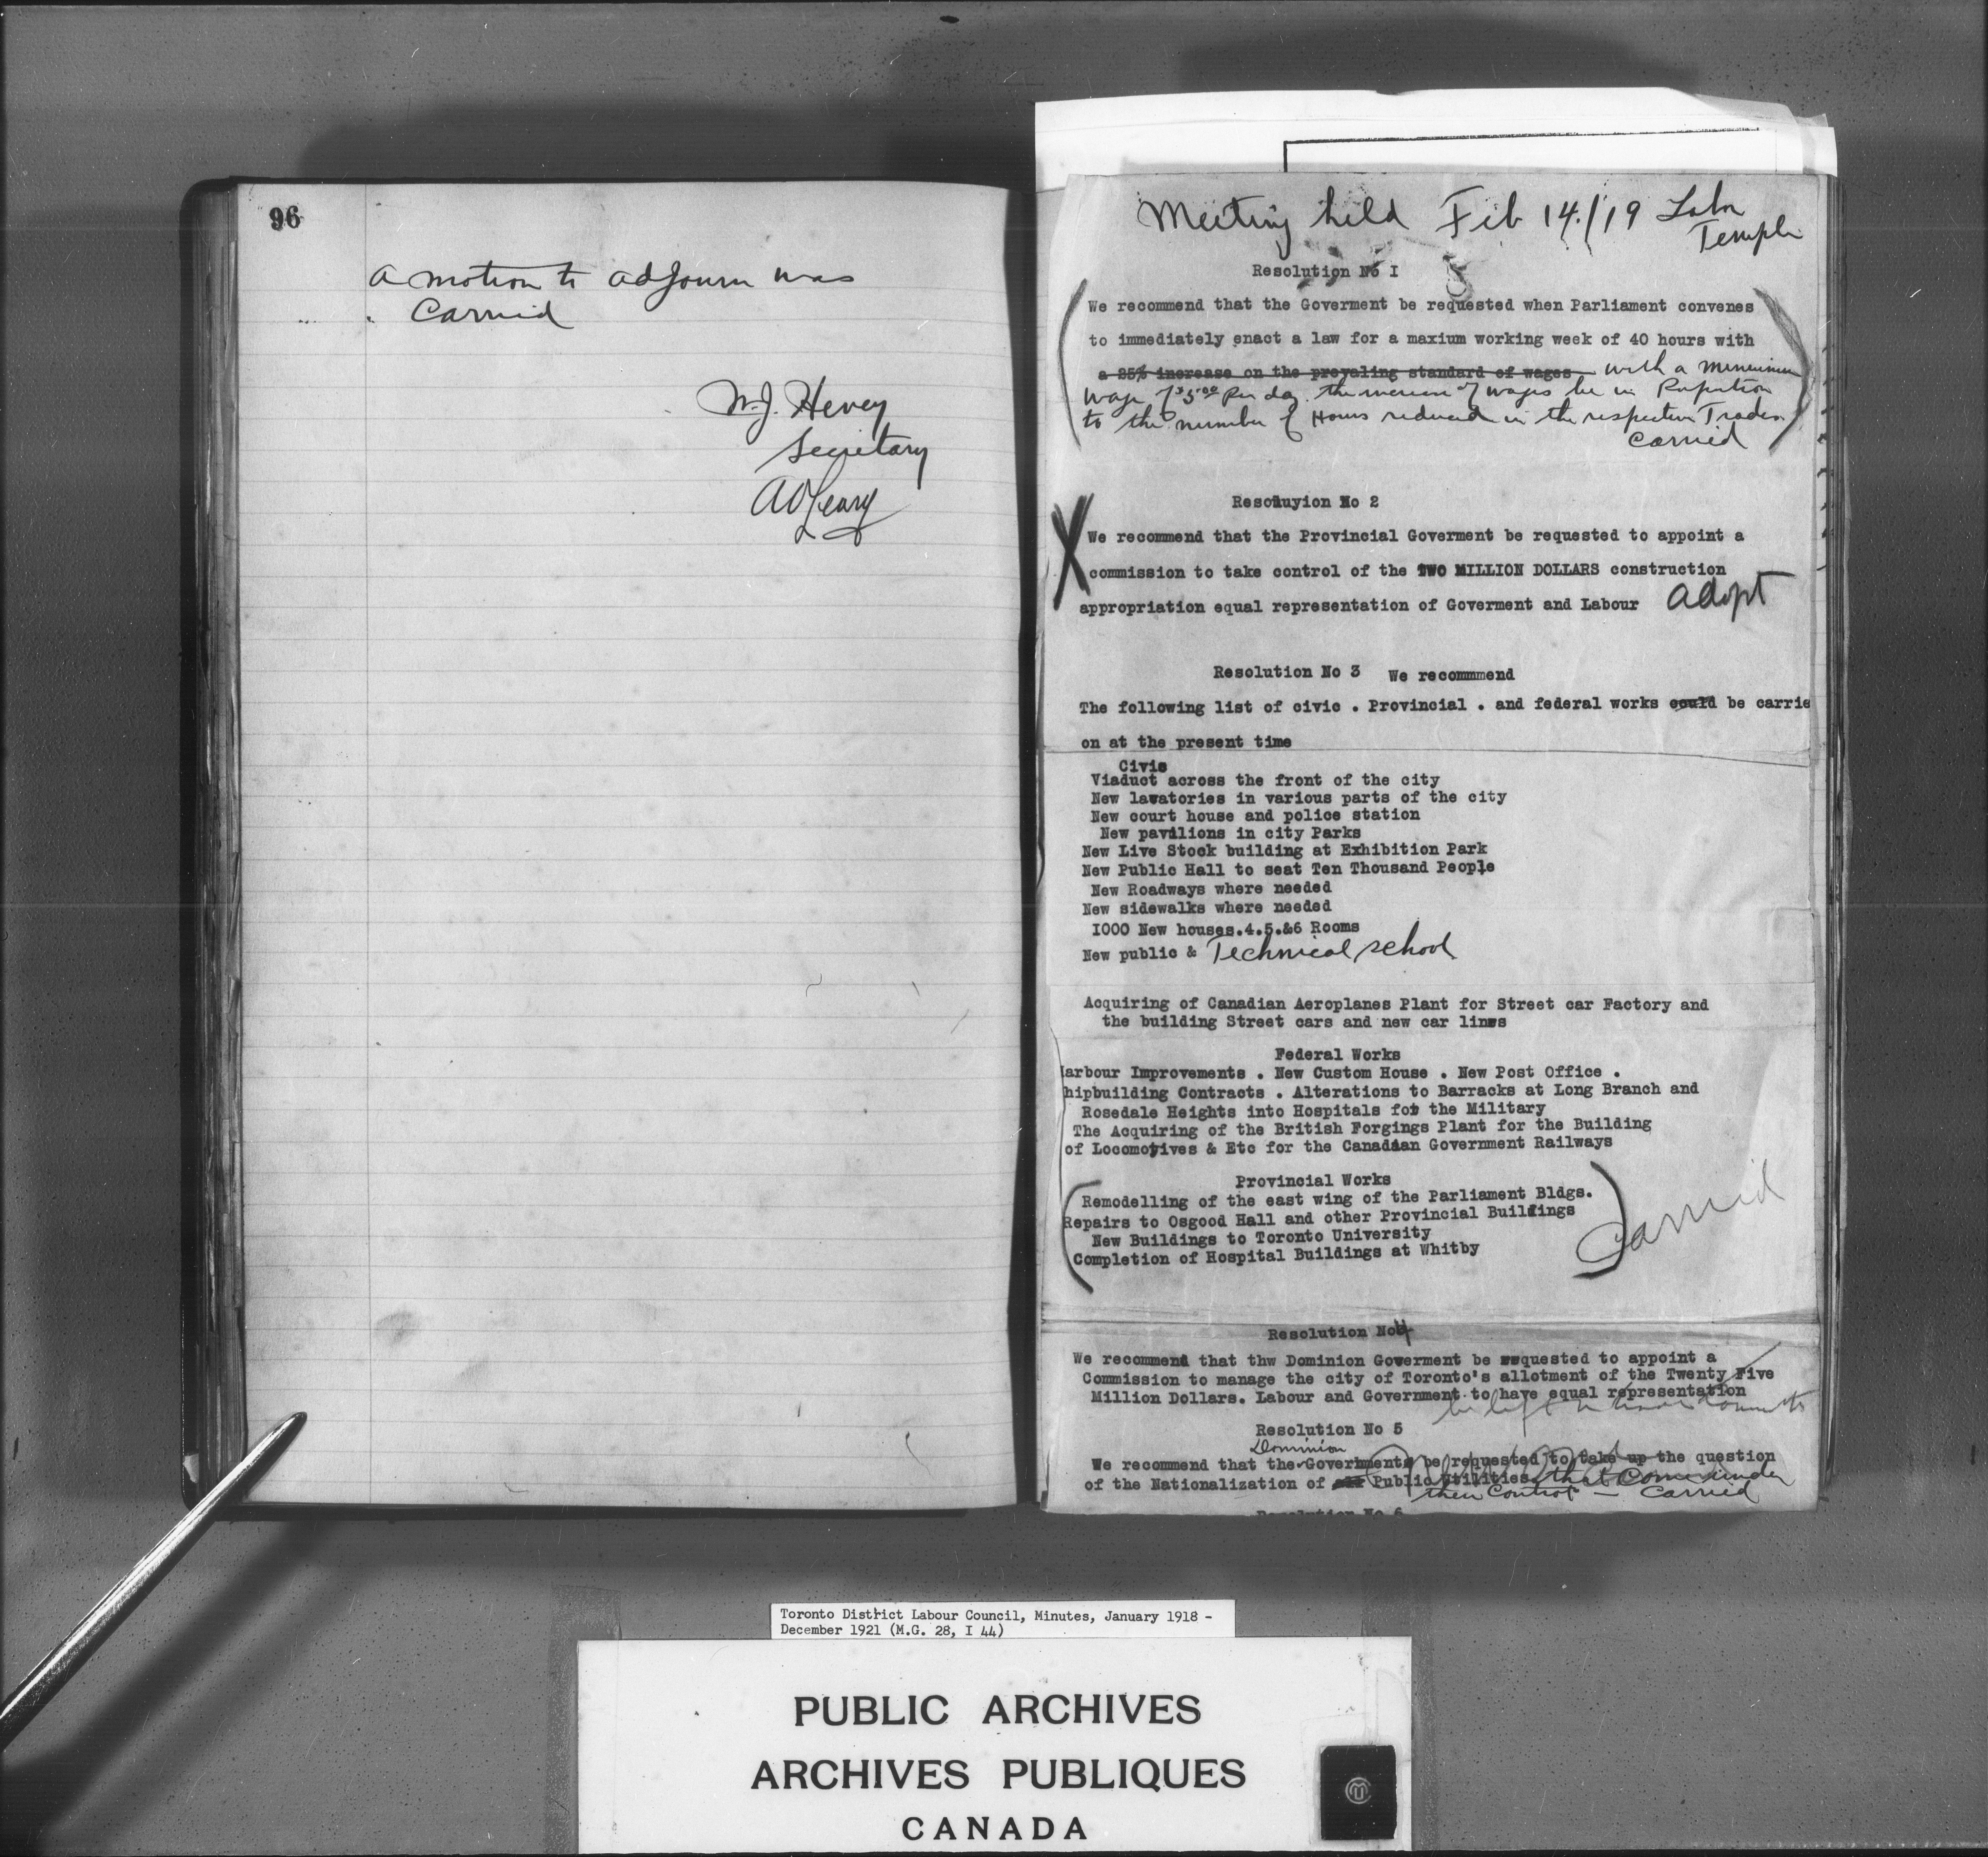 96
a motion to adjourn was
Carried
W.J. Hevey
Secretary
A O'Leary
Meeting held Feb 14./19 Labor
Temple
Resolution No I
We recommend that the Goverment be requested when Parliament convenes
to immediately enact a law for a maxium working week of 40 hours with
a 25% increase on the prevaling standard of wages with a Minimum
wage of $5.00 Per day. the increase of wages be in Proportion
to the number of Hours reduced in the respective Trades.
Carried
Resoluyion No 2
X We recommend that the Provincial Goverment be requested to appoint a
commission to take control of the TWO MILLION DOLLARS construction
appropriation equal representation of Goverment and Labour adopt
Resolution No 3 We recommmend
The following list of civic . Provincial . and federal works could be carrie
on at the present time
Civic
Viaduct across the front of the city
New lavatories in various parts of the city
New court house and police station
New pavilions in city Parks
New Live Stock building at Exhibition Park
New Public Hall to seat Ten Thousand People
New Roadways where needed
New sidewalks where needed
1000 New houses.4.5.&6 Rooms
New public & Technical school
Acquiring of Canadian Aeroplanes Plant for Street car Factory and
the building Street cars and new car lines
Federal Works
arbour Improvements . New Custom House . New Post Office .
hipbuilding Contracts . Alterations to Barracks at Long Branch and
Rosedale Heights into Hospitals for the Military
The Acquiring of the British Forgings Plant for the Building
of Locomotives & Etc for the Canadian Government Railways
Provincial Works
Remodelling of the east wing of the Parliament Bldgs.
Repairs to Osgood Hall and other Provincial Buildings
New Buildings to Toronto University
Completion of Hospital Buildings at Whitby
Carried
Resolution No 4
We recommend that thw Dominion Goverment be requested to appoint a
Commission to manage the city of Toronto's allotment of the Twenty Five
Million Dollars. Labour and Government to have equal representation
be left
Resolution No 5
Dominion
We recommend that the Goverhment be requested to take up the question
of the Nationalization of all Public Utilities that Come under
their Control — Carried
Resolution No 6
Toronto District Labour Council, Minutes, January 1918 -
December 1921 (M.G. 28, I 44)
PUBLIC ARCHIVES
ARCHIVES PUBLIQUES
CANADA